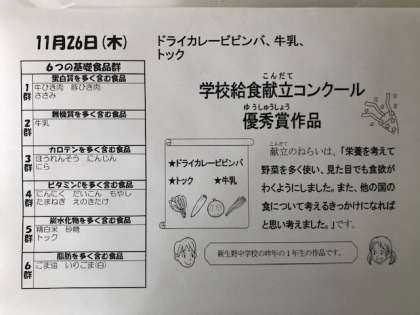 11月26日(木)
ドライカレービビンバ、牛乳、
トック
6つの基礎食品群
蛋白質を多く含む食品
1群
牛ひき肉 豚ひき肉
ささみ
無機質を多く含む食品
2群
牛乳
カロテンを多く含む食品
3群
ほうれんそう にんじん
にら
ビタミンCを多く含む食品
4群
にんにく だいこん もやし
たまねぎ えのきたけ
炭水化物を多く含む食品
5群
精白米 砂糖
トック
脂肪を多く含む食品
6群
ごま油 いりごま(白)
こんだて
学校給食献立コンクール
ゆうしゅうしょう
優秀賞作品
★ドライカレービビンバ
★トック ★牛乳
こんだて
献立のねらいは、「栄養を考えて
野菜を多く使い、見た目でも食欲が
わくようにしました。また、他の国の
食について考えるきっかけになれば
と思い考えました。」です。
新生野中学校の昨年の1年生の作品です。